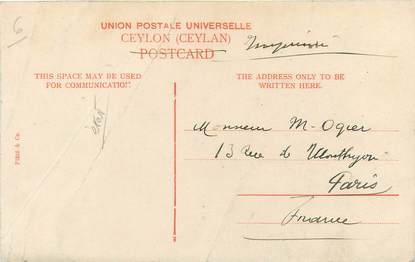 6
UNION POSTALE UNIVERSELLE
CEYLON (CEYLAN)
POSTCARD
THIS SPACE MAY BE USED
FOR COMMUNICATION
THE ADDRESS ONLY TO BE
WRITTEN HERE.
Monsieur M. Ogier
13 Rue de
Paris
France